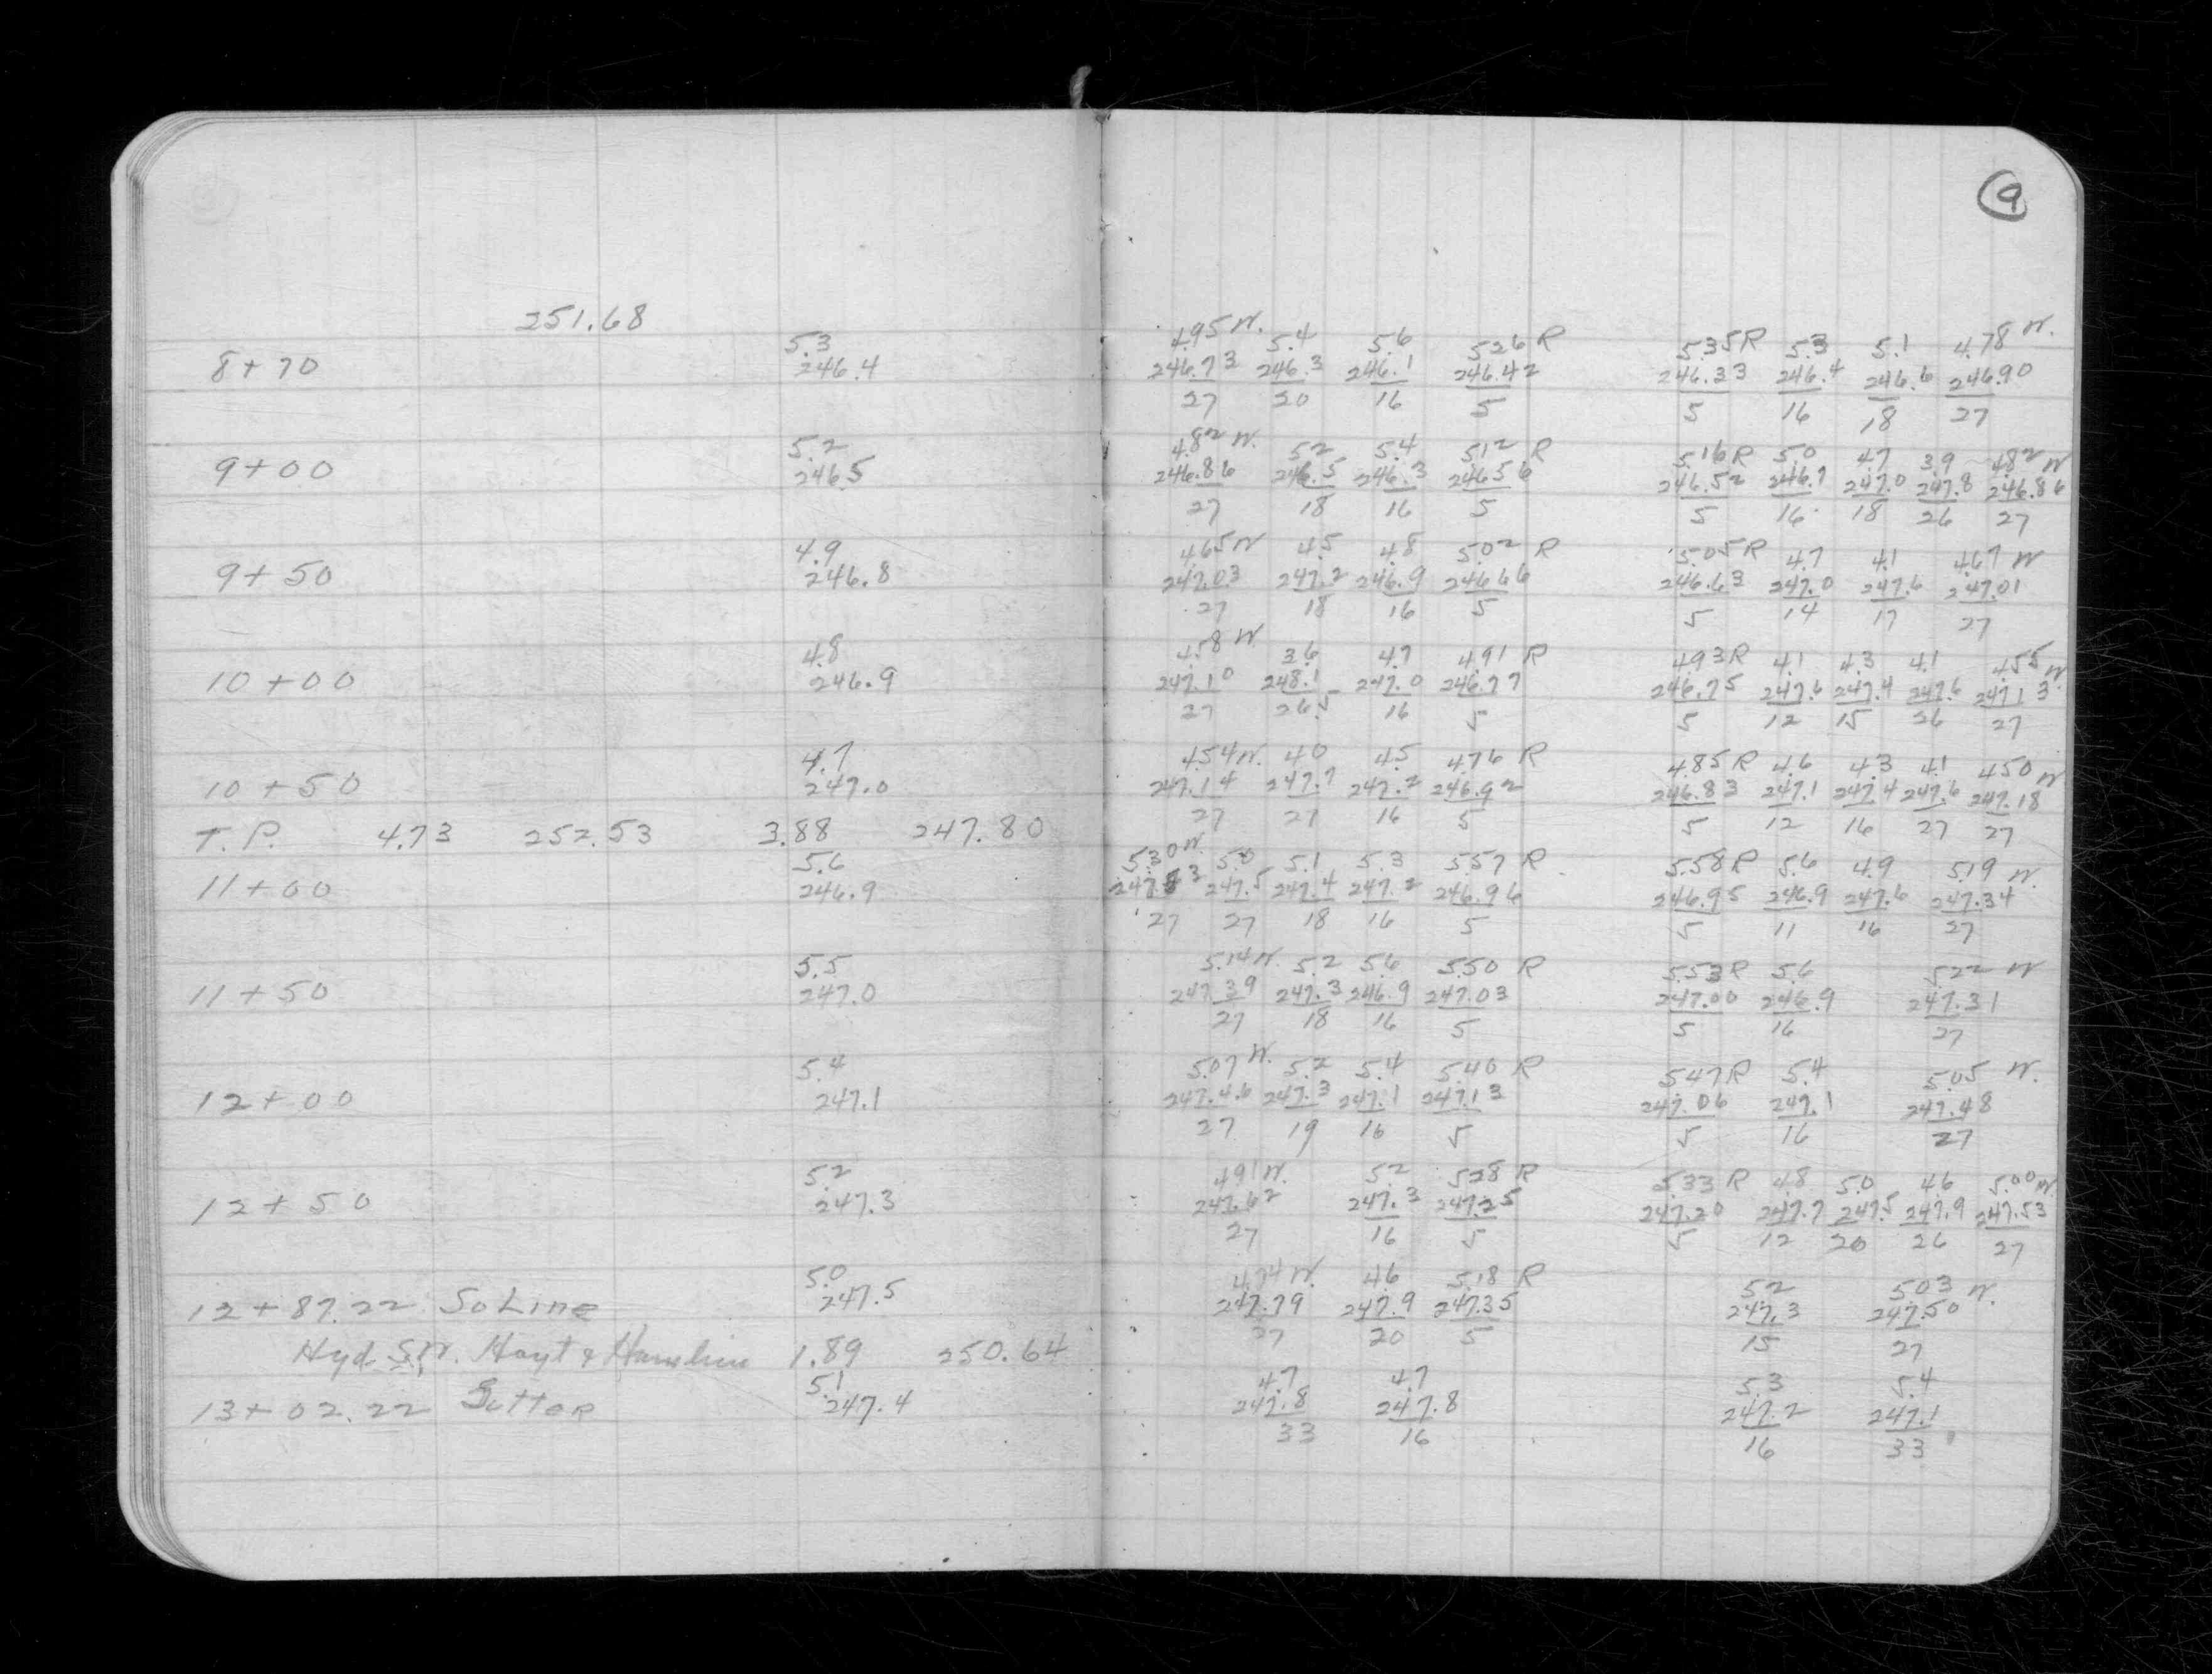 9
251.68
5.3 4.95 W. 5.4 5.6 5.26 R 5.35 R 5.3 5.1 4.78 W.
8+70 246.4 246.73 246.3 246.1 246.42 246.33 246.4 246.6 246.90
27 20 16 5 5 16 18 27
5.2 4.82 W. 5.2 5.4 5.12 R 5.16 R 5.0 4.7 3.9 4.82 W
9+00 246.5 246.86 246.5 246.3 246.56 246.52 246.7 247.0 247.8 246.86
27 18 16 5 5 16 18 26 27
4.9 4.65 W 4.5 4.8 5.02 R 5.05 R 4.7 4.1 4.67 W
9+50 246.8 247.03 247.2 246.9 246.66 246.63 247.0 247.6 247.01
27 18 16 5 5 14 17 27
4.8 4.58 W 3.6 4.7 4.91 R 4.93 R 4.1 4.3 4.1 4.55 W.
10+00 246.9 247.10 248.1 247.0 246.77 246.75 247.6 247.4 247.6 247.13
27 26.5 16 5 5 12 15 26 27
4.7 4.54 W. 4.0 4.5 4.76 R 4.85 R 4.6 4.3 4.1 4.50 W
10+50 247.0 247.14 247.7 247.2 246.92 246.83 247.1 247.4 247.6 247.18
27 27 16 5 5 12 16 27 27
T.P. 4.73 252.53 3.88 247.80
5.6 5.30 W. 5.0 5.1 5.3 5.57 R 5.58 R 5.6 4.9 5.19 W.
11+00 246.9 247.5 247.4 247.2 246.96 246.95 246.9 247.6 247.34
27 27 18 16 5 5 11 16 27
5.5 5.14 W. 5.2 5.6 5.50 R 5.53 R 5.6 5.22 W
11+50 247.0 247.39 247.3 246.9 247.03 247.00 246.9 247.31
27 18 16 5 5 16 27
5.4 5.07 W. 5.2 5.4 5.40 R 5.47 R 5.4 5.05 W.
12+00 247.1 247.46 247.3 247.1 247.13 247.06 247.1 247.48
27 19 16 5 5 16 27
5.2 4.91 W. 5.2 5.28 R 5.33 R 4.8 5.0 4.6 5.00 W
12+50 247.3 247.62 247.3 247.25 247.20 247.7 247.5 247.9 247.53
27 16 5 5 12 20 26 27
5.0 4.74 W. 4.6 5.18 R 5.2 5.03 W.
12+87.22 So Line 247.5 247.79 247.9 247.35 247.3 247.50
27 20 5 15 27
Hyd. S.W. Hoyt & Hamlin 1.89 250.64
5.1 4.7 4.7 5.3 5.4
13+02.22 Gutter 247.4 247.8 247.8 247.2 247.1
33 16 16 33